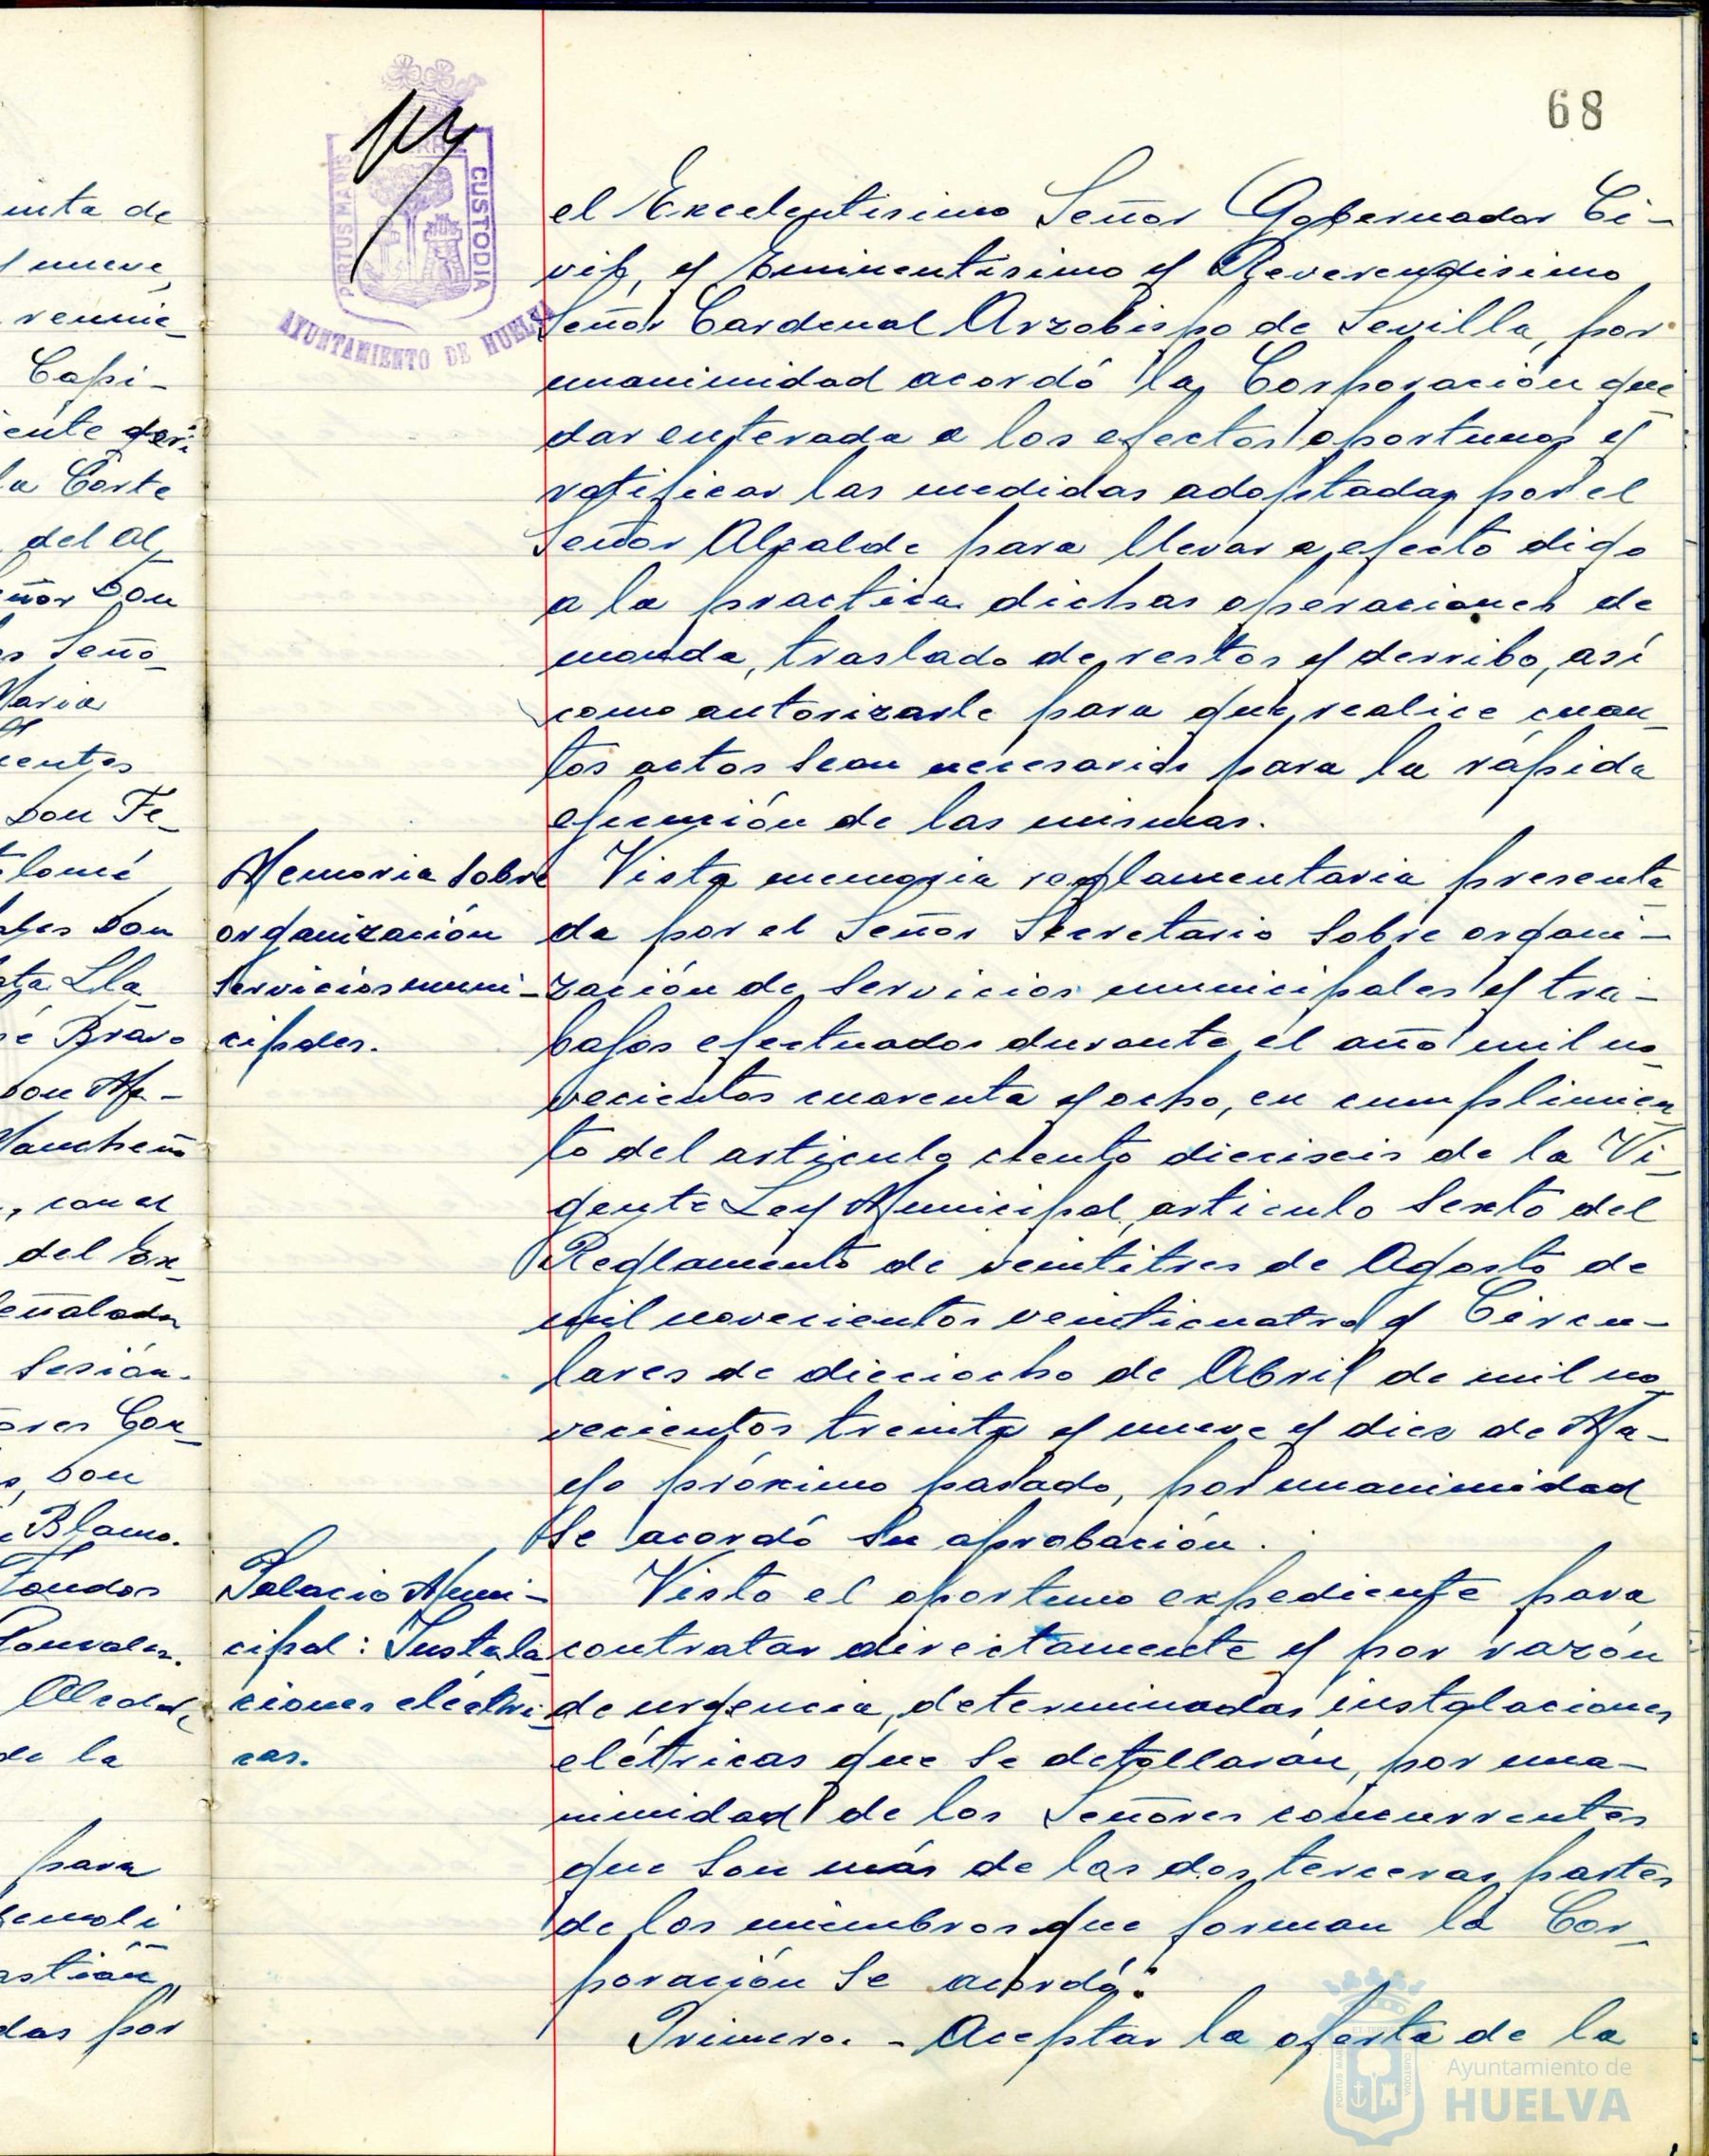 68
PORTUS MARIS
CUSTODIA
AYUNTAMIENTO DE HUELVA
el Excelentisimo Señor Gobernador Ci-
vil, y Eminentisimo y Reverendisimo
Señor Cardenal Arzobispo de Sevilla, por
unanimidad acordó la Corporación que
dar enterada a los efectos oportunos y
ratificar las medidas adoptadas por el
Señor Alcalde para llevar a efecto digo
a la practica dichas operaciones de
monda, traslado de restos y derribo, así
como autorizarle para que realice cuan-
tos actos sean necesarios para la rápida
ejecución de las mismas.
Memoria sobre
organización
servicios muni-
cipales.
Vista memoria reglamentaria presenta
da por el Señor Secretario sobre organi-
zación de servicios municipales y tra-
bajos efectuados durante el año mil no
vecientos cuarenta y ocho, en cumplimien
to del articulo ciento dieciseis de la Vi-
gente Ley Municipal, articulo sexto del
Reglamento de veintitres de Agosto de
mil novecientos veinticuatro y Circu-
lares de dieciocho de Abril de mil no
vecientos treinta y nueve y diez de Ma-
yo próximo pasado, por unanimidad
se acordó su aprobación.
Palacio Muni-
cipal: Instala
ciones eléctri-
cas.
Visto el oportuno expediente para
contratar directamente y por razón
de urgencia, determinadas instalaciones
elétricas que se detallarán, por una-
nimidad de los Señores concurrentes
que son más de las dos terceras partes
de los miembros que forman la Cor-
poración se acordó:
Primero. - Aceptar la oferta de la
Ayuntamiento de
HUELVA
inta de
y nueve,
reunie-
Capi-
la Corte
del Al
ñor Don
s Seño-
Maria
Don Fe-
lomé
Don
Lla
é Bravo
Don Ma-
, con el
del Ex-
eñalada
sesión.
ores Con-
Don
Blanco.
Fondos
de la
para
das por